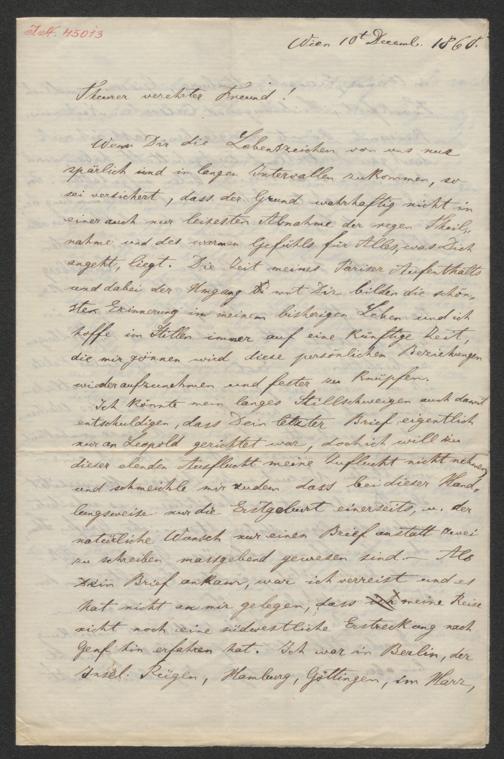 I.N. 45013
Wien 10t Decemb. 1860.
Theurer verehrter Freund!
Wenn Dir die Lebenszeichen von uns nur
spärlich und in langen Intervallen zukommen, so
sei versichert, dass der Grund wahrhaftig nicht in
einer auch nur leisesten Abnahme der regen Theil-
nahme und des warmen Gefühls für Alles, was Dich
angeht, liegt. Die Zeit meines Pariser Aufenthalts
und dabei der Umgang mit Dir bilden die schön-
ste Erinnerung in meinem bisherigen Leben und ich
hoffe im Stillen immer auf eine künftige Zeit,
die mir gönnen wird diese persönlichen Beziehungen
wiederaufzunehmen und fester zu knüpfen.
Ich könnte mein langes Stillschweigen auch damit
entschuldigen, dass Dein letzter Brief eigentlich
nur an Leopold gerichtet war, doch ich will zu
dieser elenden Ausflucht meine Zuflucht nicht nehmen
und schmeichle mir zudem dass bei dieser Hand-
lungsweise nur die Erstgeburt einerseits, u. der
natürliche Wunsch nur einen Brief anstatt zwei
zu schreiben massgebend gewesen sind. – Als
Dein Brief ankam, war ich verreist und es
hat nicht an mir gelegen, dass meine Reise
nicht noch eine südwestliche Erstreckung nach
Genf hin erfahren hat. Ich war in Berlin, der
Insel Rügen, Hamburg, Göttingen, im Harz,